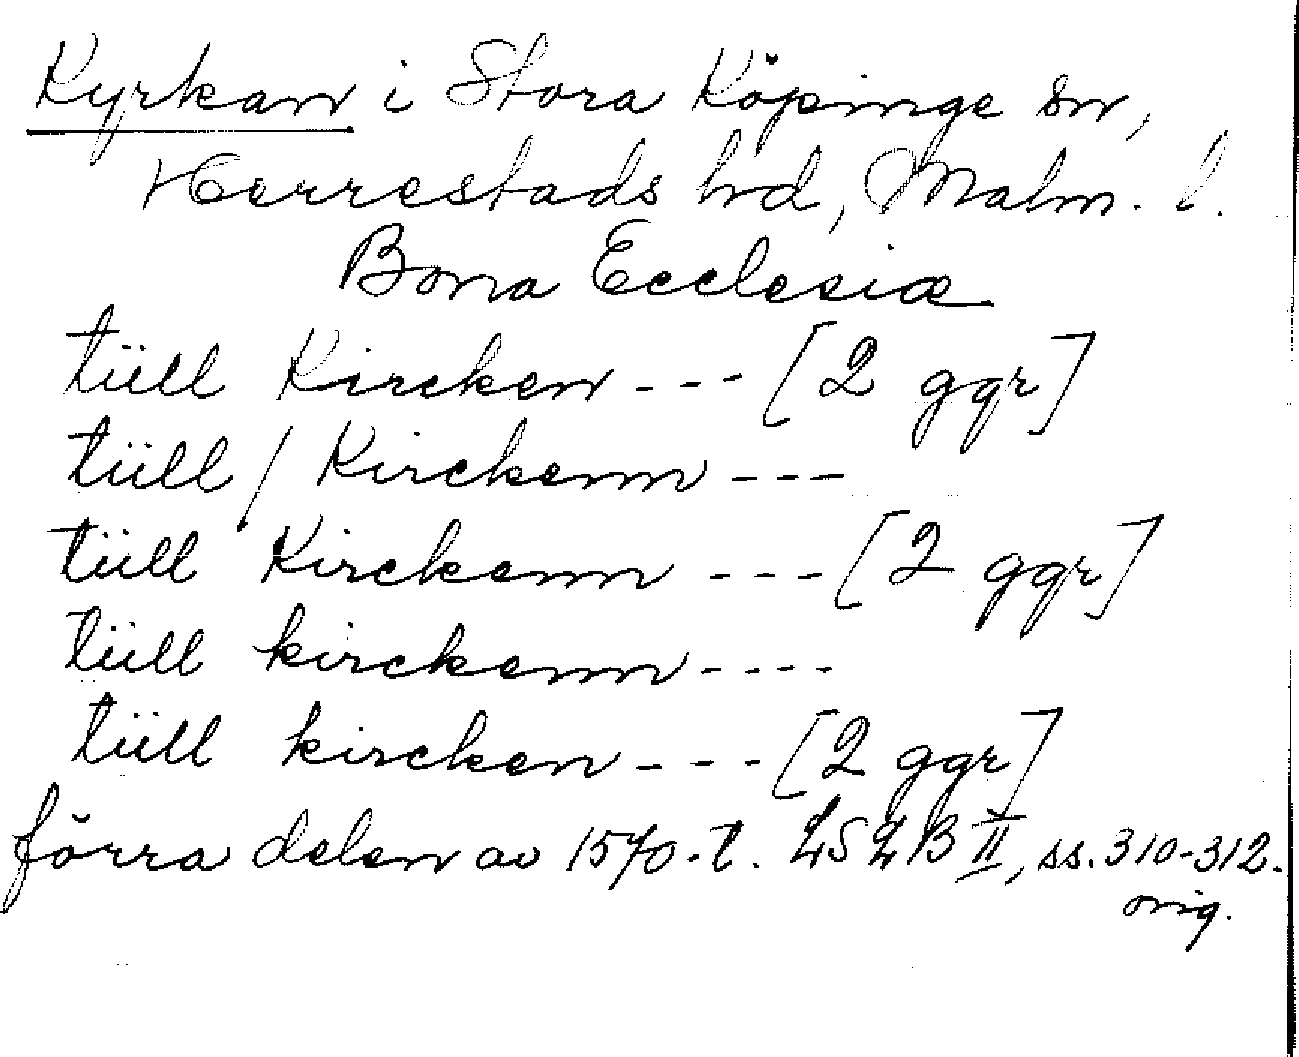 Kyrkan i Stora Köpinge sn,
Herrestads hd, Malm. l.
Bona Ecclesiæ
tüll Kircken - - - [2 ggr]
tüll / Kirckenn - - -
tüll Kirckenn - - - [2 ggr]
tüll kirckenn - - - -
tüll kircken - - - [2 ggr]
förra delen av 1570-t. LSLB II, ss. 310-312.
orig.